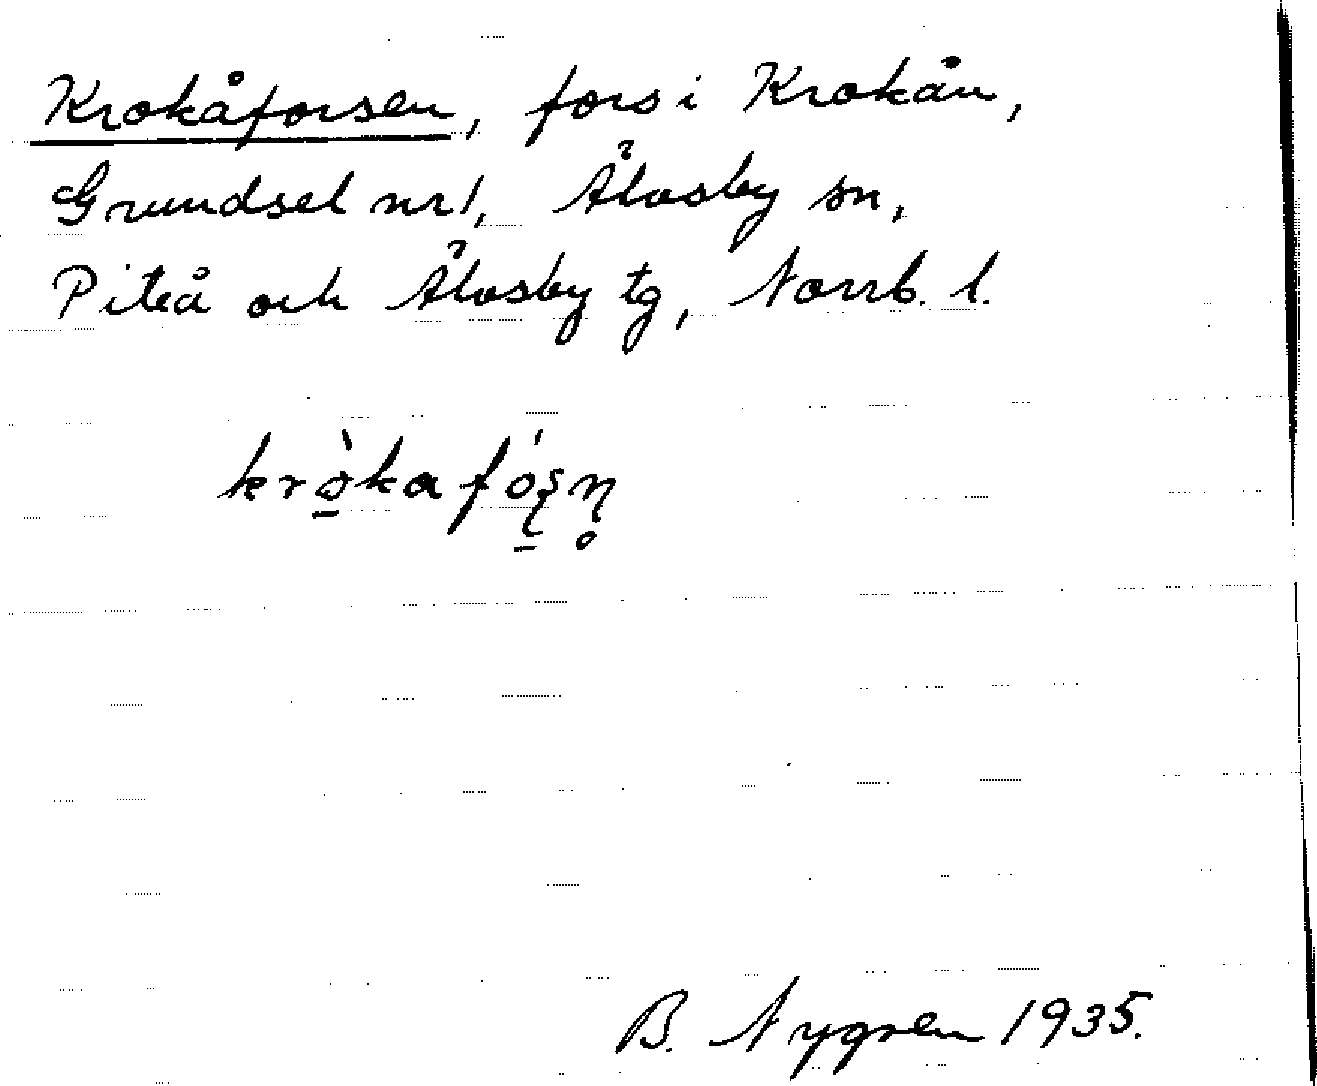 Krokåforsen, fors i Krokån,
Grundsel nr 1, Älvsby sn,
Piteå och Älvsby tg, Norrb. l.
krò̱kafó̱ʂɳ̥
B. Nygren 1935.